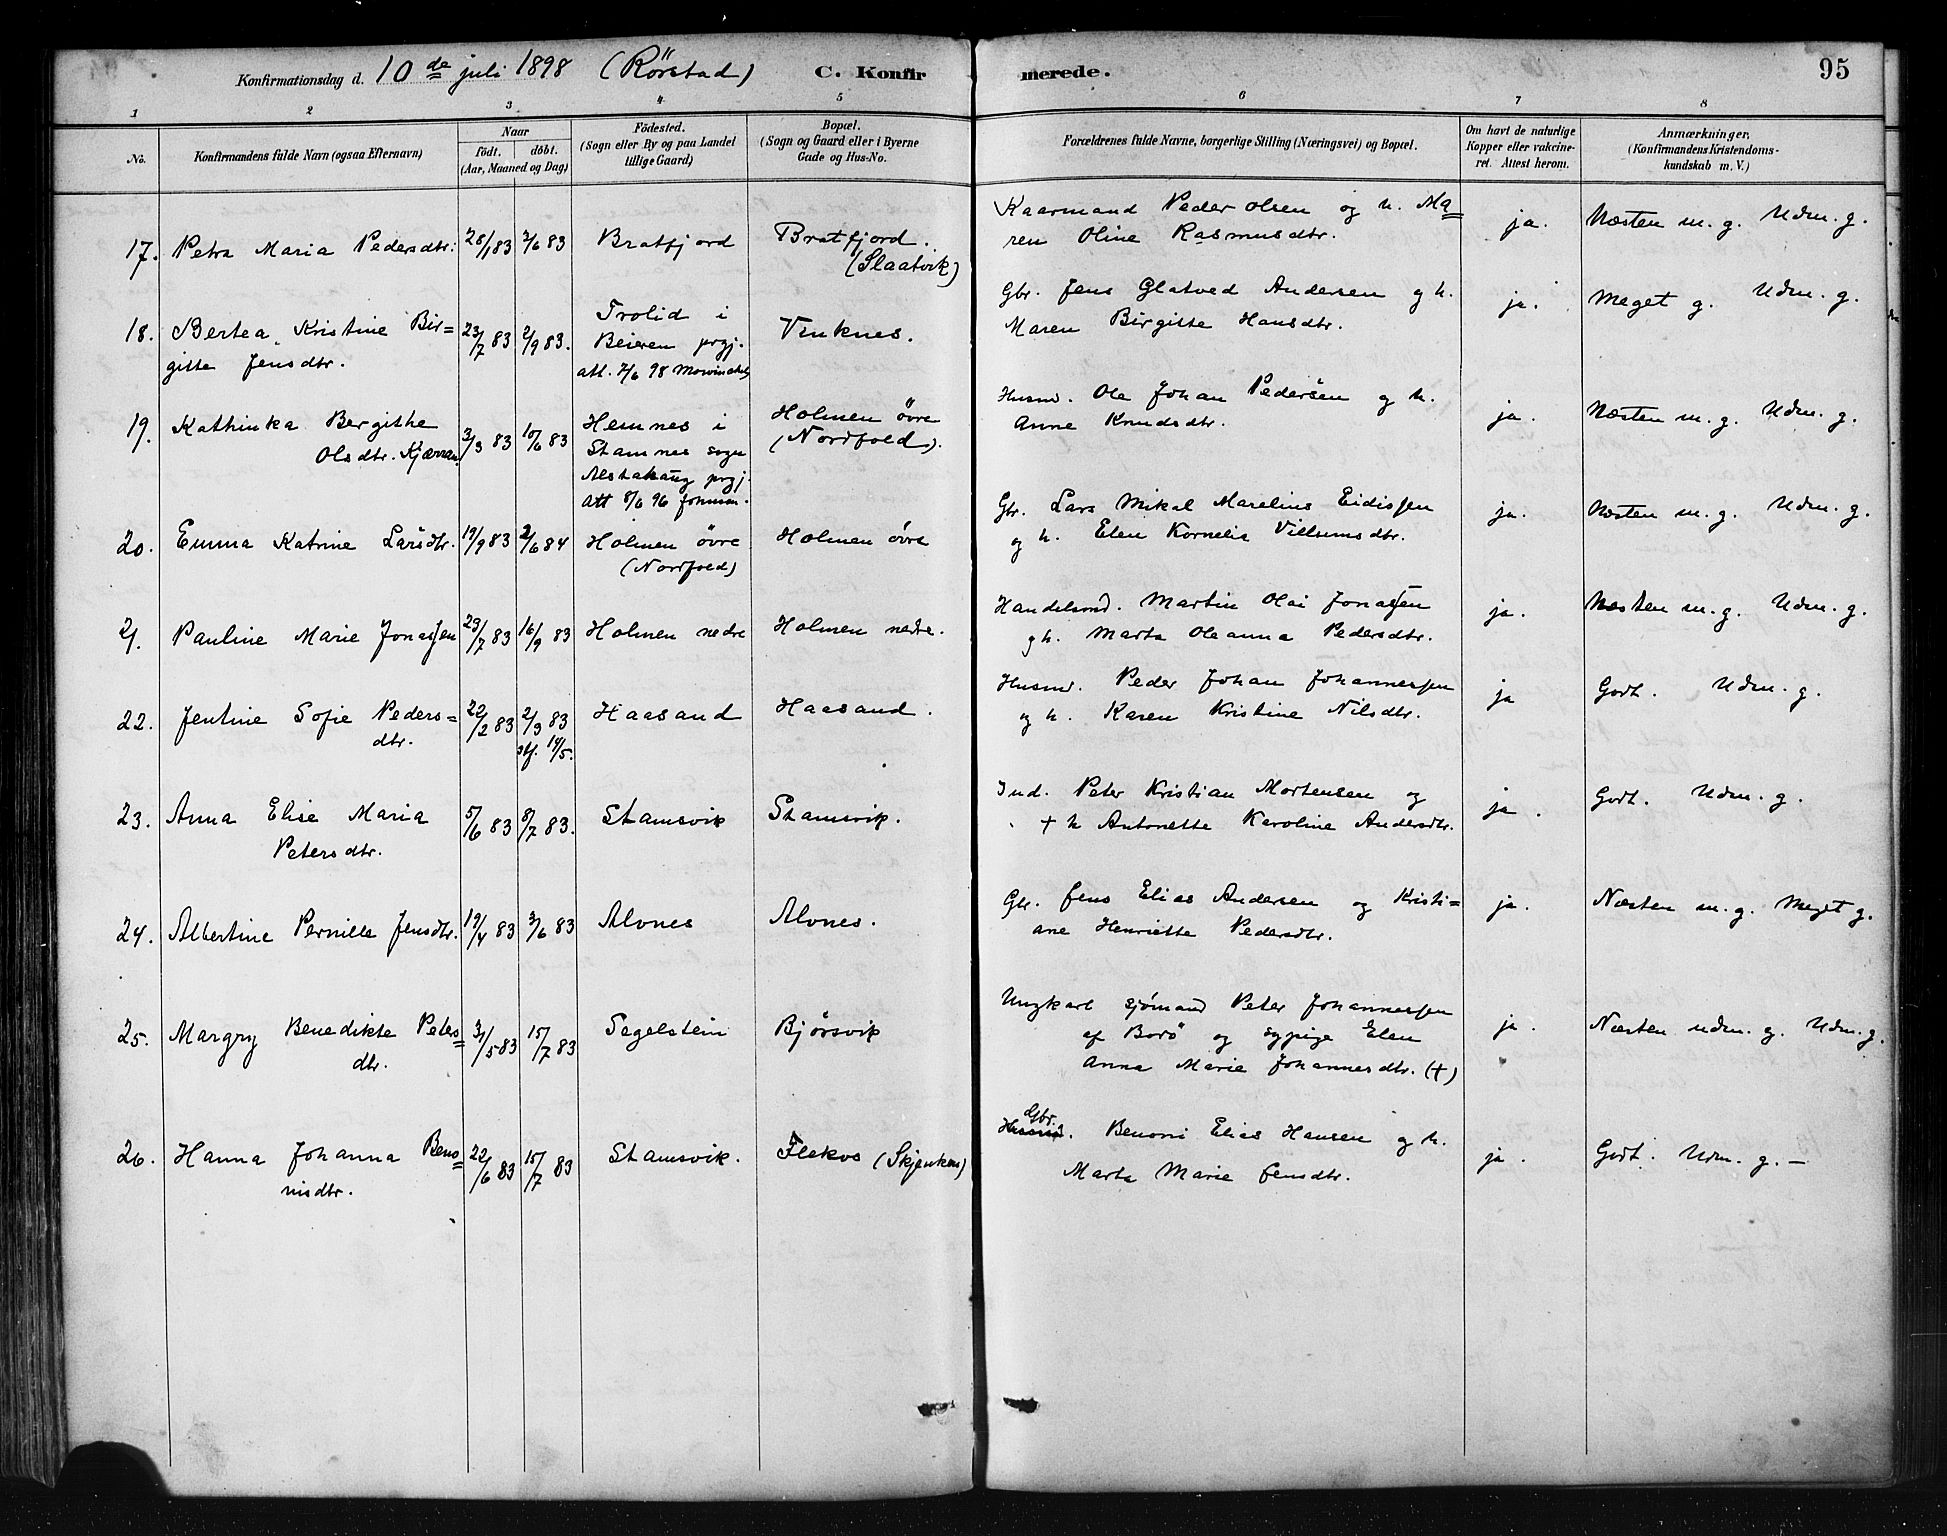 Konfirmationsdag d. 10de juli 1898 (Rörstad) C. Konfirmerede. 95
1 2 3 4 5 6 7 8
No.
Konfirmandens fulde Navn (ogsaa Efternavn)
Naar
födt. döbt.
(Aar, Maaned og Dag)
Födested.
(Sogn eller By og paa Landet
tillige Gaard)
Bopæl.
(Sogn og Gaard eller i Byerne
Gade og Hus-No.
Forældrenes fulde Navne, borgerlige Stilling (Næringsvei) og Bopæl.
Om havt de naturlige
Kopper eller vakcine-
ret. Attest herom.
Anmærkninger,
(Konfirmandens Kristendoms-
kundskab m. V.)
17. Petra Maria Pedersdtr. 28/1 83 3/6 83 Bratfjord Bratfjord.
(Slaatvik)
Kaarmand Peder Olsen og h. Ma=
ren Oline Rasmusdtr.
ja. Næsten m. g. Udm. g.
18. Bertea Kristine Bir=
gitte Jensdtr.
23/7 83 2/9 83.
Trolid i
Beieren prgj.
att. 7/6 98
Vinknes.
Gbr. Jens Glatved Andersen og h.
Maren Birgitte Hansdtr.
ja. Meget g. Udm. g.
19. Kathinka Bergithe
Olsdtr. Kjærran
3/3 83 10/6 83
Hemnes i
Stamnes sogn
Alstahaug prgj.
Att 8/6 96
Holmen övre
(Nordfold).
Husm. Ole Johan Pedersen og h.
Anne Knudsdtr.
ja. Næsten m. g. Udm. g.
20. Emma Katrine Larsdtr. 19/9 83 2/6 84 Holmen övre
(Nordfold)
Holmen övre
Gbr. Lars Mikal Marelius Eidissen
og h. Elen Kornelia Villumsdtr.
ja. Næsten m. g. Udm. g.
21. Pauline Marie Jonassen 23/7 83 16/9 83 Holmen nedre Holmen nedre.
Handelsmd. Martin Olai Jonassen
og h. Marta Oleanna Pedersdtr.
ja. Næsten m. g. Udm. g.
22. Jentine Sofie Peders=
dtr.
22/2 83 2/3 83
stf. 14/5.
Haasand Haasand.
Husmd. Peder Johan Johannessen
og h. Karen Kristine Nilsdtr.
ja Godt. Udm. g.
23. Anna Elise Maria
Petersdtr.
5/6 83 8/7 83. Stamsvik Stamsvik.
Ind. Peter Kristian Mortensen og
+ h Antonette Karoline Andersdtr.
ja. Godt. Udm. g.
24. Albertine Pernille Jensdtr. 19/4 83 3/6 83 Alvnes Alvnes.
Gbr. Jens Elias Andersen og Kristi=
ane Henriette Pedersdtr.
ja. Næsten m. g. Meget g.
25. Margry Benedikte Peters=
dtr.
31/5 83 15/7 83 Sagelstein Bjørsvik
Ungkarl sjømand Peter Johannessen
af Borö og sypige Elen
Anna Marie Johannesdtr. (+)
ja. Næsten udm. g. Udm. g.
26. Hanna Johanna Beno=
nisdtr.
22/6 83 15/7 83 Stamsvik. Flekvs (Skjenkens)
Gbr.
Husmd. Benoni Elias Hansen og h.
Marta Marie Jensdtr.
ja. Godt. Udm. g. –